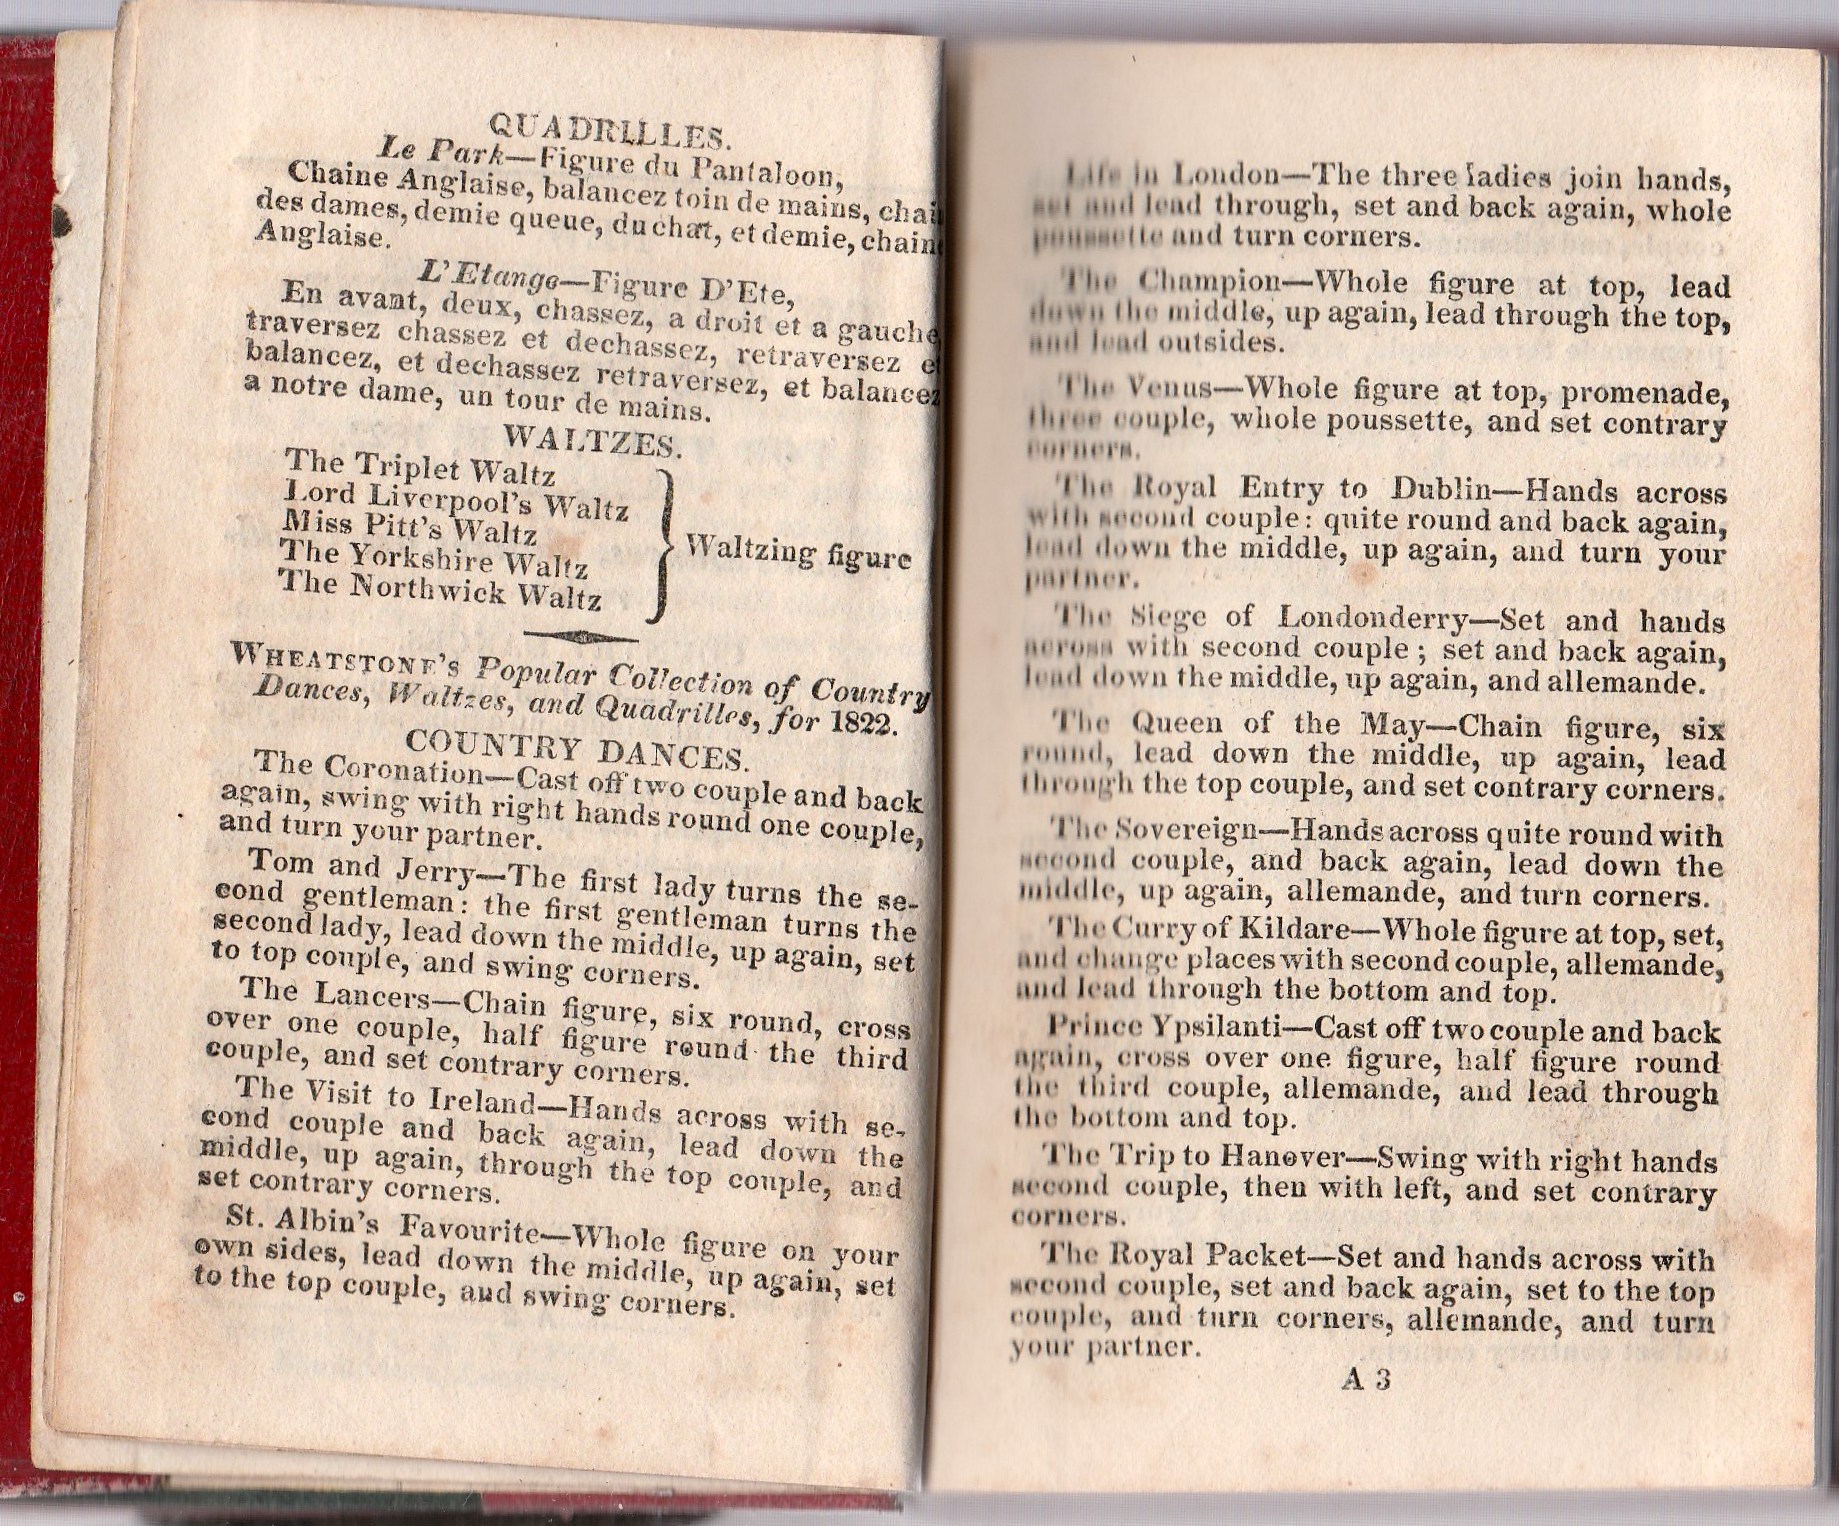 QUADRILLES.
Le Park—Figure du Pantaloon,
Chaine Anglaise, balancez toin de mains, chai
des dames, demie queue, du chat, et demie, chain
Anglaise.
L'Etange—Figure D'Ete,
En avant, deux, chassez, a droit et a gauche
traversez chassez et dechassez, retraversez e
balancez, et dechassez retraversez, et balancez
a notre dame, un tour de mains.
WALTZES.
The Triplet Waltz
Lord Liverpool's Waltz
Miss Pitt's Waltz
The Yorkshire Waltz
The Northwick Waltz
Waltzing figure
WHEATSTONE'S Popular Collection of Country
Dances, Waltzes, and Quadrilles, for 1822.
COUNTRY DANCES.
The Coronation—Cast off two couple and back
again, swing with right hands round one couple,
and turn your partner.
Tom and Jerry—The first lady turns the se-
cond gentleman: the first gentleman turns the
second lady, lead down the middle, up again, set
to top couple, and swing corners.
The Lancers—Chain figure, six round, cross
over one couple, half figure round the third
couple, and set contrary corners.
The Visit to Ireland—Hands across with se-
cond couple and back again, lead down the
middle, up again, through the top couple, and
set contrary corners.
St. Albin's Favourite—Whole figure on your
own sides, lead down the middle, up again, set
to the top couple, and swing corners.
Life in London—The three ladies join hands,
set and lead through, set and back again, whole
poussette and turn corners.
The Champion—Whole figure at top, lead
down the middle, up again, lead through the top,
and lead outsides.
The Venus—Whole figure at top, promenade,
three couple, whole poussette, and set contrary
corners.
The Royal Entry to Dublin—Hands across
with second couple: quite round and back again,
lead down the middle, up again, and turn your
partner.
The Siege of Londonderry—Set and hands
across with second couple; set and back again,
lead down the middle, up again, and allemande.
The Queen of the May—Chain figure, six
round, lead down the middle, up again, lead
through the top couple, and set contrary corners.
The Sovereign—Hands across quite round with
second couple, and back again, lead down the
middle, up again, allemande, and turn corners.
The Curry of Kildare—Whole figure at top, set,
and change places with second couple, allemande,
and lead through the bottom and top.
Prince Ypsilanti—Cast off two couple and back
again, cross over one figure, half figure round
the third couple, allemande, and lead through
the bottom and top.
The Trip to Hanover—Swing with right hands
second couple, then with left, and set contrary
corners.
The Royal Packet—Set and hands across with
second couple, set and back again, set to the top
couple, and turn corners, allemande, and turn
your partner.
A 3